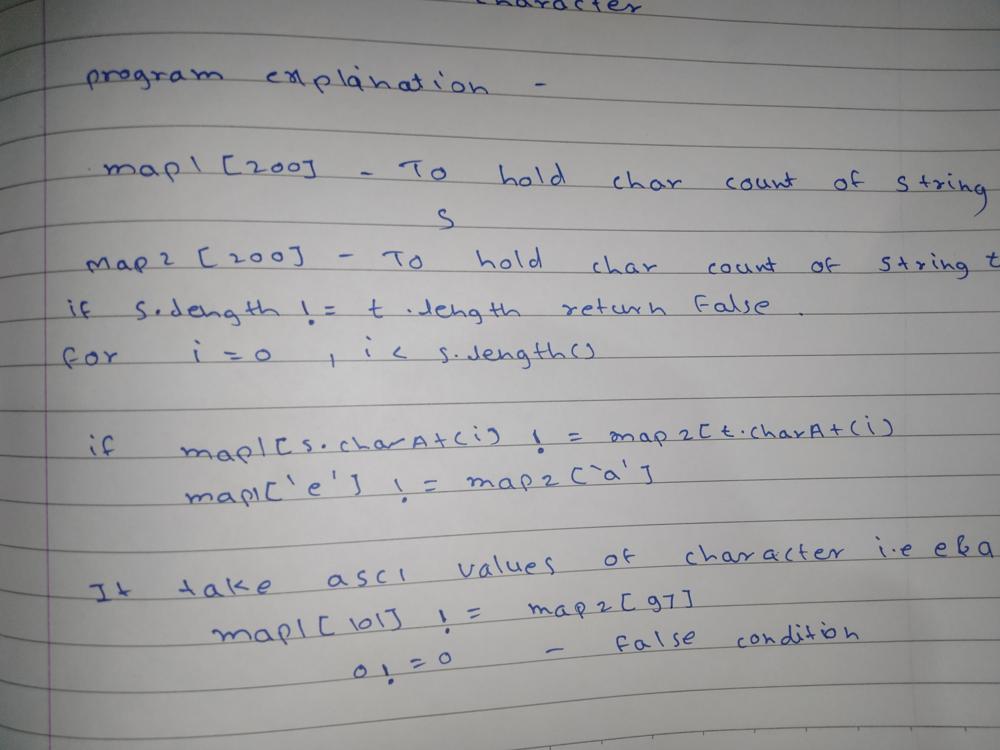 character
program explanation -
map1[200] - To hold char count of string
s
map2[200] - To hold char count of string t
if s.length != t.length return False.
for i=0, i< s.length()
if map1[s.charAt(i) != map2[t.charAt(i)
map1['e'] != map2['a']
It take asci values of character i.e e&a
map1[101] != map2[97]
0!=0 - False condition